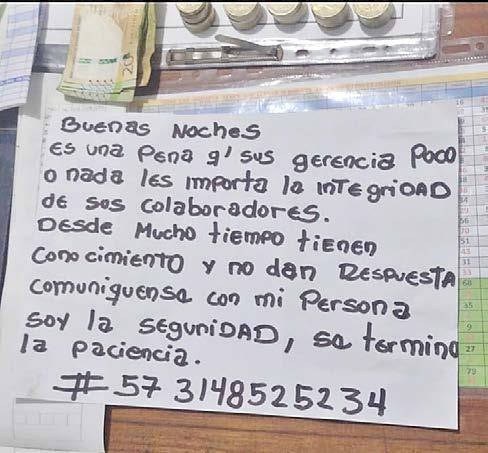 Buenas Noches
es una Pena q' sus gerencia Poco
o nada les importa la inTegriDAD
de sos colaboradores.
Desde Mucho tiempo tienen
Cono cimiento y no dan Respuesta
comuniquense con mi Persona
soy la seguriDAD, se termino
la paciencia.
# 57 3148525234